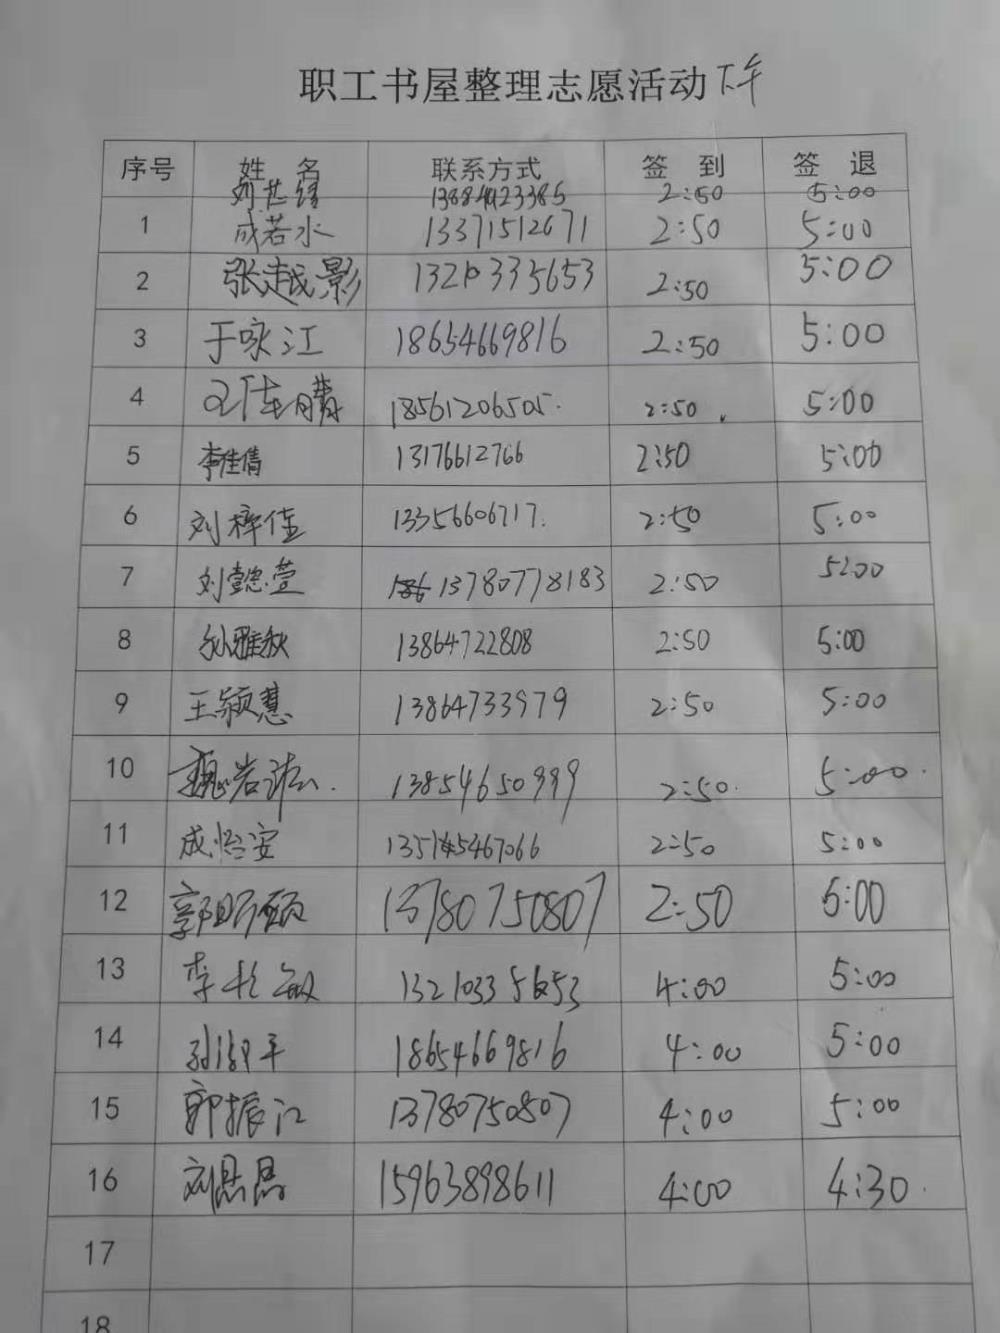 职工书屋整理志愿活动 下午
序号 姓 名 联系方式 签 到 签 退
刘芷绮 2:50 5:00
1 成若水 13371512671 2:50 5:00
2 张越影 13210335653 2:50 5:00
3 于咏江 18654669816 2:50 5:00
4 18561206505. 2:50 5:00
5 李佳倩 13176612766 2:50 5:00
6 刘梓佳 13356606717. 2:50 5:00
7 刘懿萱 13780778183 2:50 5:00
8 孙雅秋 13864722808 2:50 5:00
9 王颖慧 13864733979 2:50 5:00
10 魏岩 13854650999 2:50. 5:00.
11 成怡安 2:50 5:00
12 郭 13780750807 2:50 6:00
13 李 敏 13210335653 4:00 5:00
14 孙淑平 18654669816 4:00 5:00
15 郭振江 13780750807 4:00 5:00
16 刘思昌 15963898611 4:00 4:30.
17
18